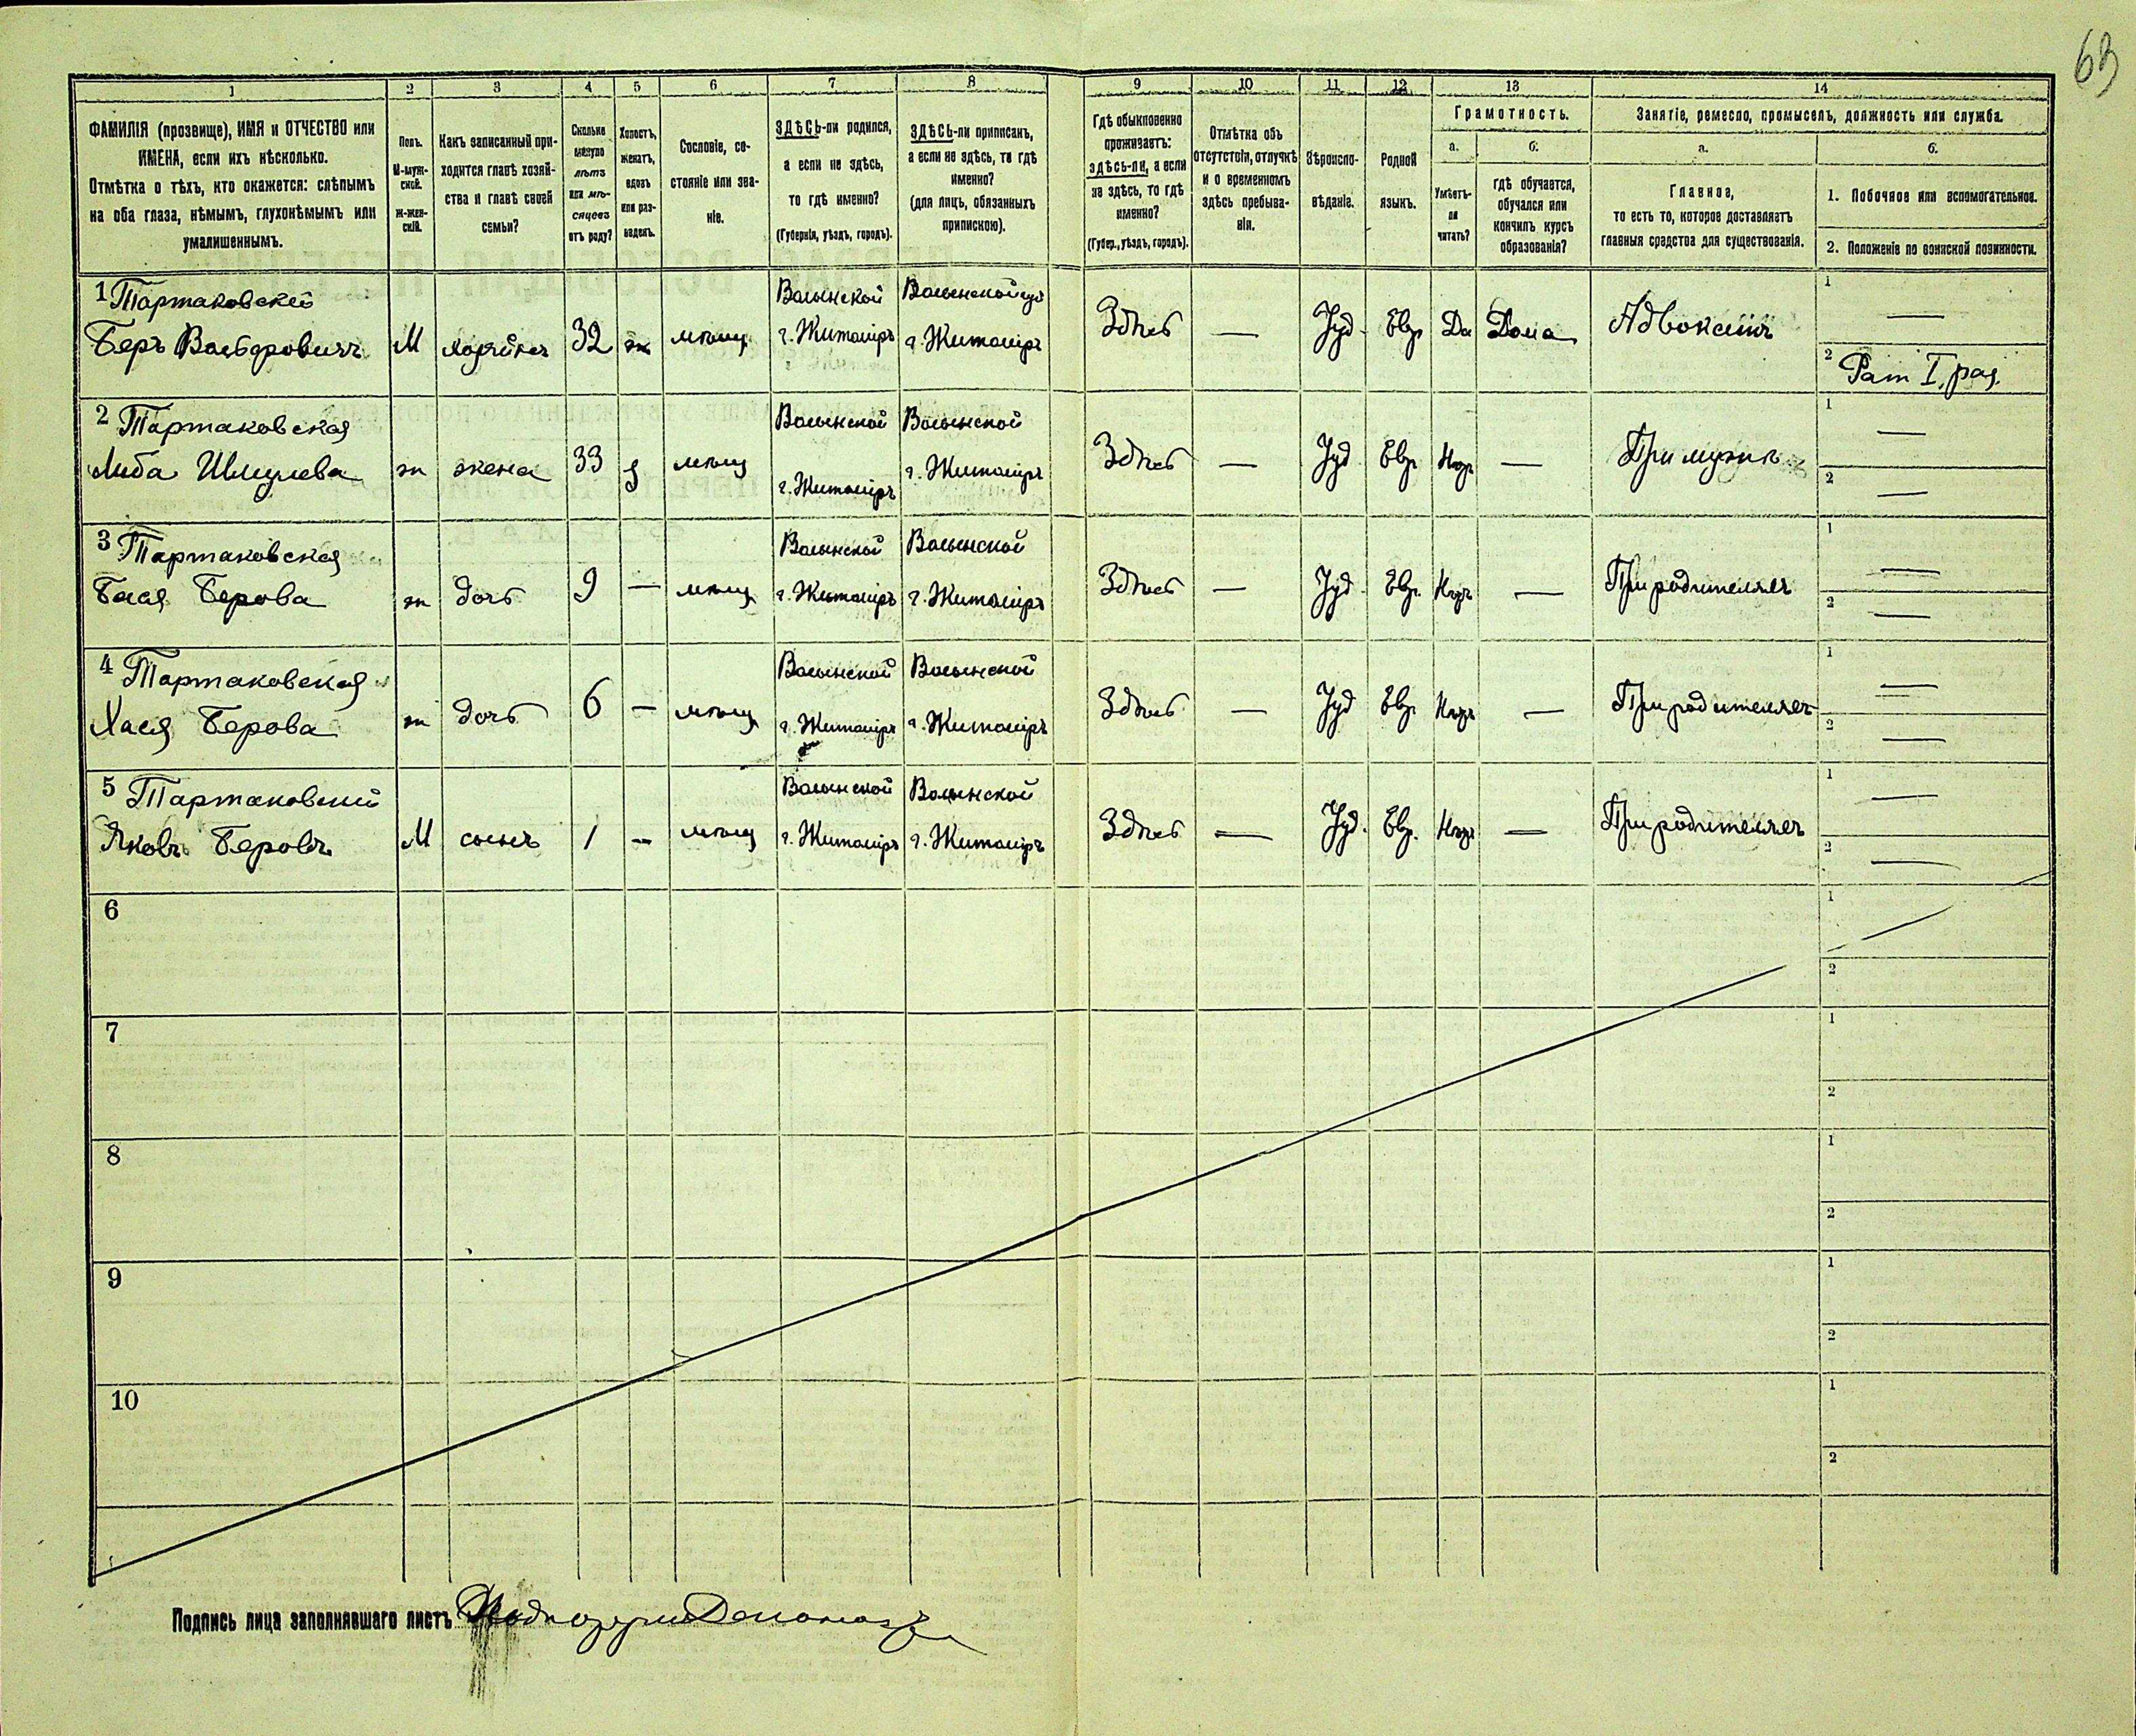 63
1 2 3 4 5 6 7 8 9 10 11 12 13 14
ФАМИЛІЯ (прозвище), ИМЯ и ОТЧЕСТВО или
ИМЕНА, если ихъ нѣсколько.
Отмѣтка о тѣхъ, кто окажется: слѣпымъ
на оба глаза, нѣмымъ, глухонѣмымъ или
умалишеннымъ.
Полъ.
М-муж-
ской.
Ж-жен-
скій.
Какъ записанный при-
ходится главѣ хозяй-
ства и главѣ своей
семьи?
Сколько
минуло
лѣтъ
или мѣ-
сяцевъ
отъ роду?
Холостъ,
женатъ,
вдовъ
или раз-
веденъ.
Сословіе, со-
стояніе или зва-
ніе.
ЗДѢСЬ-ли родился,
а если не здѣсь,
то гдѣ именно?
(Губернія, уѣздъ, городъ).
ЗДѢСЬ-ли приписанъ,
а если не здѣсь, то гдѣ
именно?
(для лицъ, обязанныхъ
припискою).
Гдѣ обыкновенно
проживаетъ:
здѣсь-ли, а если
не здѣсь, то гдѣ
именно?
(Губер., уѣздъ, городъ).
Отмѣтка объ
отсутствіи, отлучкѣ
и о временномъ
здѣсь пребыва-
ніи.
Вѣроиспо-
вѣданіе.
Родной
языкъ.
Грамотность.
а. б.
Умѣетъ-
ли
читать?
гдѣ обучается,
обучался или
кончилъ курсъ
образованія?
Занятіе, ремесло, промыселъ, должность или служба.
а. б.
Главное,
то есть то, которое доставляетъ
главныя средства для существованія.
1. Побочное или вспомогательное.
2. Положеніе по воинской повинности.
1 Тартаковскій Волынской Волынской губ 1 —
Беръ Вольфовичъ М хозяинъ 32 ж мѣщ г. Житоміръ г. Житоміръ Здѣсь — Іуд. Евр. Да Дома Адвокатъ
2 Рат I. раз.
2 Тартаковская Волынской Волынской 1 —
Либа Шмулева ж жена 33 з мѣщ г. Житоміръ г. Житоміръ Здѣсь — Іуд Евр. — При мужѣ
2 —
3 Тартаковская Волынской Волынской 1 —
Бася Берова ж дочь 9 — мѣщ г. Житоміръ г. Житоміръ Здѣсь — Іуд. Евр. — При родителяхъ
2 —
4 Тартаковская Волынской Волынской 1 —
Хася Берова ж дочь 6 — мѣщ г. Житоміръ г. Житоміръ Здѣсь — Іуд Евр. — При родителяхъ
2 —
5 Тартаковскій Волынской Волынской 1 —
Яковъ Беровъ М сынъ 1 — мѣщ г. Житоміръ г. Житоміръ Здѣсь — Іуд. Евр. — При родителяхъ
2 —
6 1
2
7 1
2
8 1
2
9 1
2
10 1
2
Подпись лица заполнявшаго листъ